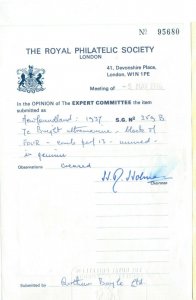 Nº 95680
THE ROYAL PHILATELIC SOCIETY
LONDON
41, Devonshire Place,
London, W1N 1PE
Meeting of
In the OPINION of The EXPERT COMMITTEE the item
submitted as
Newfoundland - 1937 S.G. Nº 259B
7c Bright ultramarine - block of
FOUR - comb perf 13 - unused -
is genuine
Observations
Chairman
Submitted by Ltd